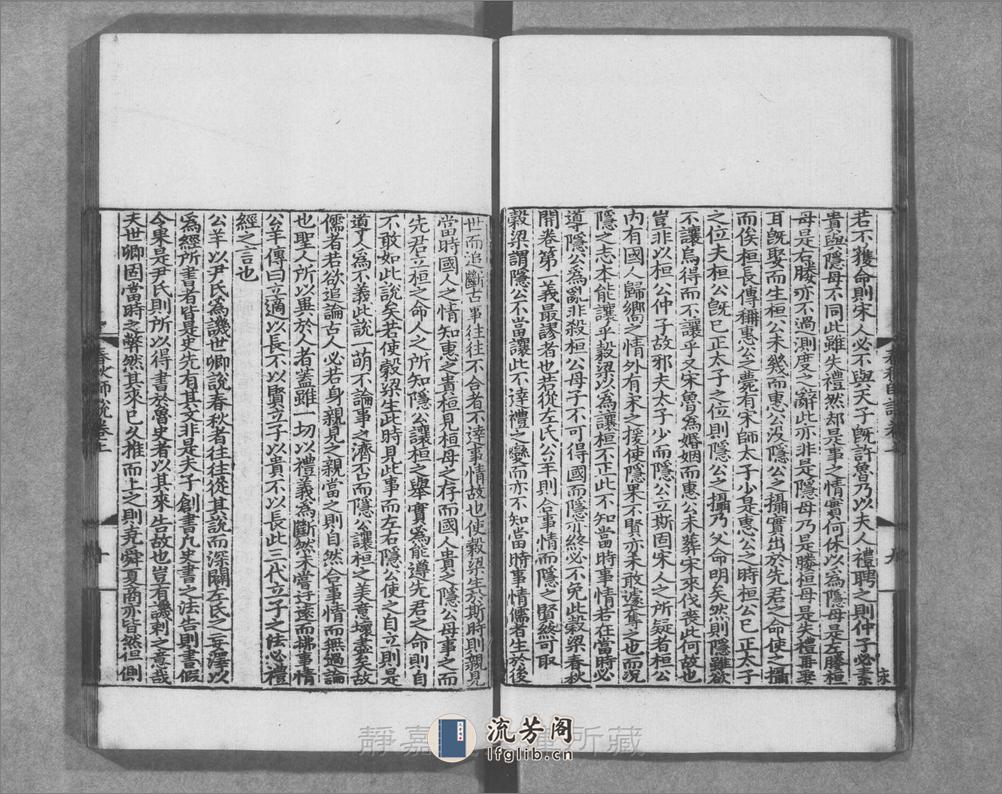 若不獲命則宋人必不與天子旣許魯乃以夫人禮聘之則仲子必素
貴與隱母不同此雖失禮然却是事之情實何休以爲隱母是左媵桓
母是右媵亦不過測度之辭此亦非是隱母乃是媵桓母是失禮再娶
耳旣娶而生桓公未幾而惠公没隱公之攝實出於先君之命使之攝
而俟桓長傳稱惠公之薨有宋師太子少是惠公之時桓公已正太子
之位夫桓公旣已正太子之位則隱公之攝乃父命明矣然則隱雖欲
不讓烏得而不讓乎又宋魯爲婚姻而惠公未葬宋來伐喪此何故也
豈非以桓公仲子故邪夫太子少而隱公立斯固宋人之所疑者桓公
内有國人歸嚮之情外有宋之援使隱果不賢亦未敢遽奪之也而况
隱之志本能讓乎穀梁以爲讓桓不正此不知當時事情若在當時必
導隱公爲亂非殺桓公母子不可得國而隱亦終必不免此穀梁春秋
開卷第一義最謬者也若從左氏公羊則合事情而隱之賢煞可取
穀梁謂隱公不當讓此不達禮之變而亦不知當時事情儒者生於後
世而追斷古事往往不合者不達事情故也使穀梁生於斯時則親見
當時國人之情知惠之貴桓見桓母之存而國人貴之隱公母事之而
先君立桓之命人之所知隱公讓桓之舉實爲能遵先君之命則自
不敢如此說矣若使穀梁生此時見此事而左右隱公使之自立則是
導人爲不義此說一萌不論事之濟否而隱公讓桓之美意壞盡矣故
儒者若欲追論古人必若身親見之親當之則自然合事情而無過論
也聖人所以異於人者蓋雖一切以禮義爲斷然未嘗迂遠而拂事情
公羊傳曰立適以長不以賢立子以貴不以長此三代立子之法必禮
經之言也
公羊以尹氏爲譏世卿說春秋者往往從其說而深闢左氏之妄澤以
爲經所書者皆是史先有其文非是夫子創書凡史書之法告則書假
令果是尹氏則所以得書於魯史者以其來告故也豈有譏刺之意哉
夫世卿固當時之弊然其來已久推而上之則堯舜夏商亦皆然但側
春秋師說卷上
九
春秋師說卷上
十
静嘉堂文庫所藏
流芳阁
lfglib.cn